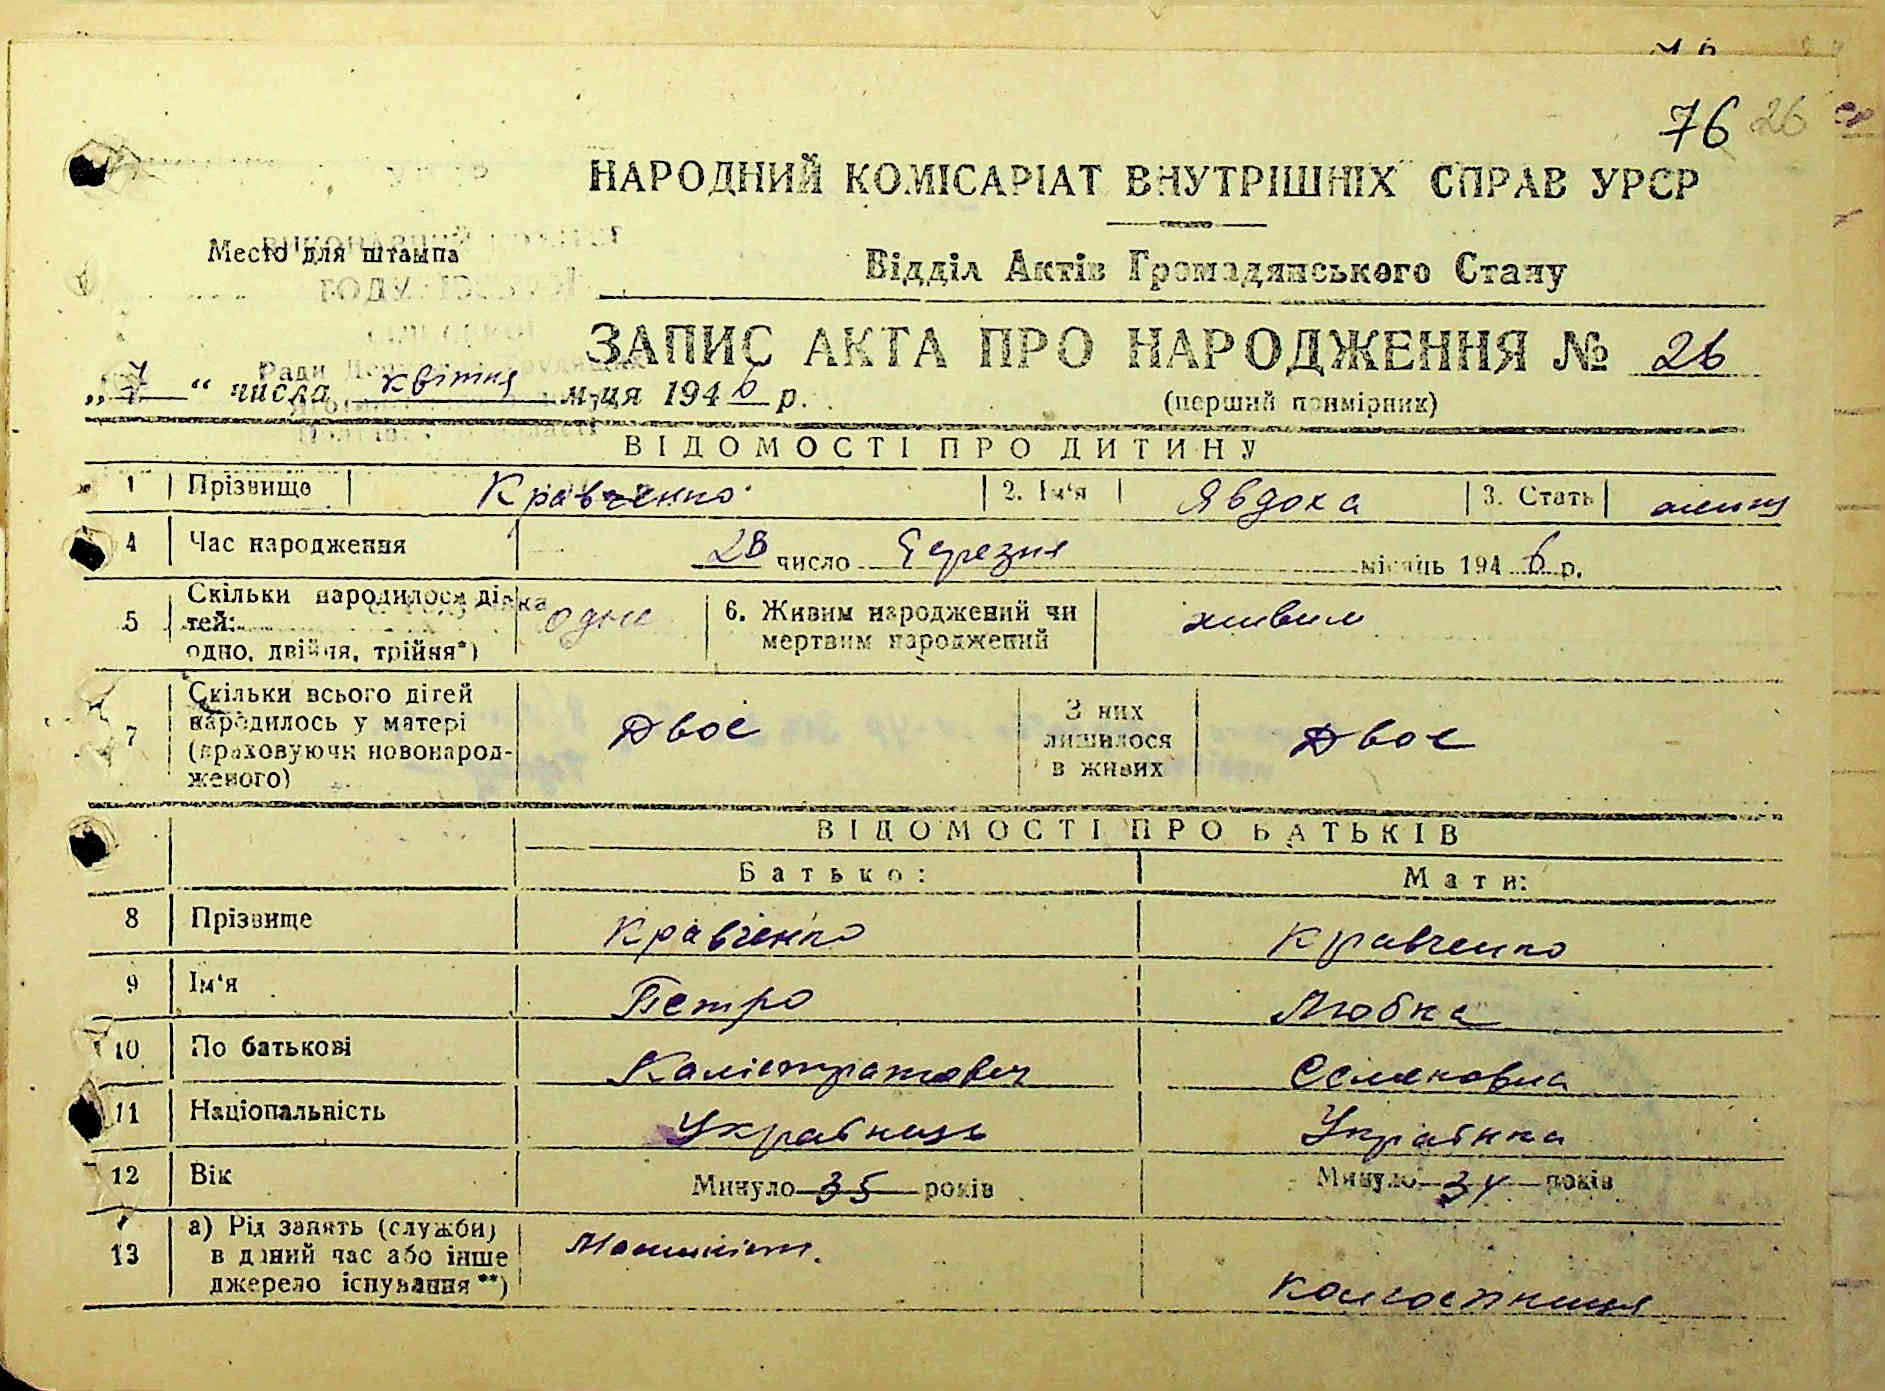 76 26
НАРОДНИЙ КОМІСАРІАТ ВНУТРІШНІХ СПРАВ УРСР
Место для штампа
Відділ Актів Громадянського Стану
ЗАПИС АКТА ПРО НАРОДЖЕННЯ № 26
„7“ числа квітня м-ця 1946 р.
(перший примірник)
ВІДОМОСТІ ПРО ДИТИНУ
1 Прізвище Кравченко 2. Ім'я Явдоха 3. Стать
4 Час народження 28 число Березня місяць 1946 р.
5 Скільки народилося ді-
тей: одне 6. Живим народжений чи живим
одно, двійня, трійня*) мертвим народжений
7 Скільки всього дітей
народилось у матері
(враховуючи новонарод-
женого) Двоє З них
лишилося
в живих Двоє
ВІДОМОСТІ ПРО БАТЬКІВ
Батько: Мати:
8 Прізвище Кравченко Кравченко
9 Ім'я Петро Любка
10 По батькові Калістратович Семеновна
11 Національність Українець Українка
12 Вік Минуло 35 років Минуло 34 років
13 а) Рід занять (служби)
в даний час або інше
джерело існування**) Машиніст. колгоспниця